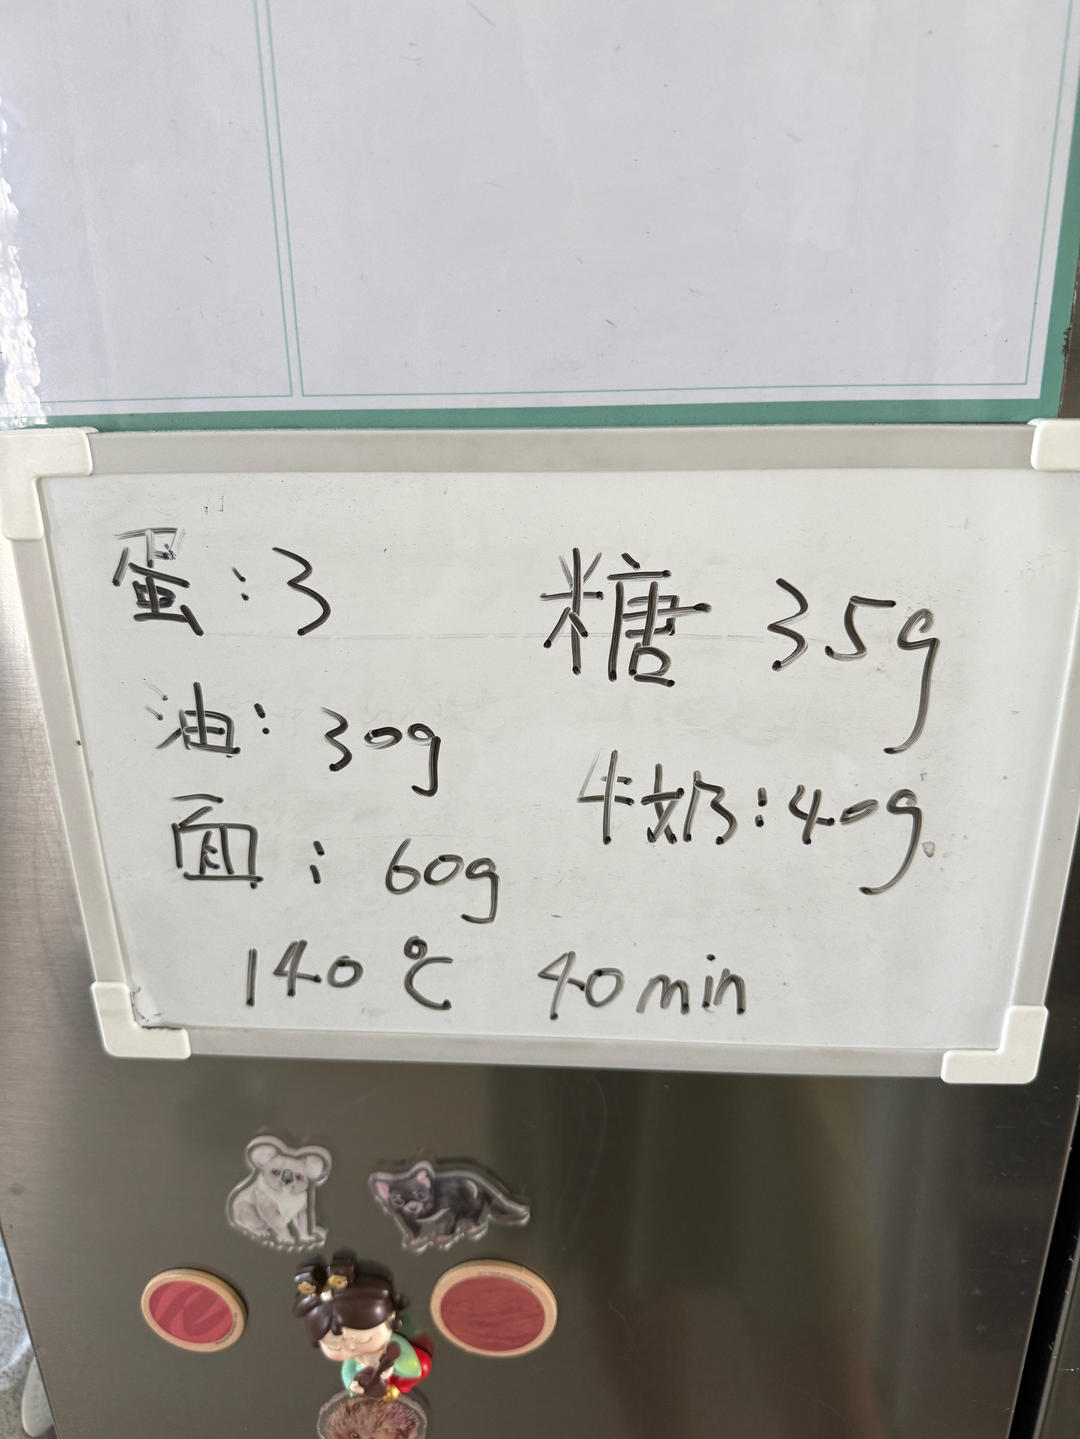 蛋:3 糖 35g
油:30g 牛奶:40g
面:60g
140℃ 40min